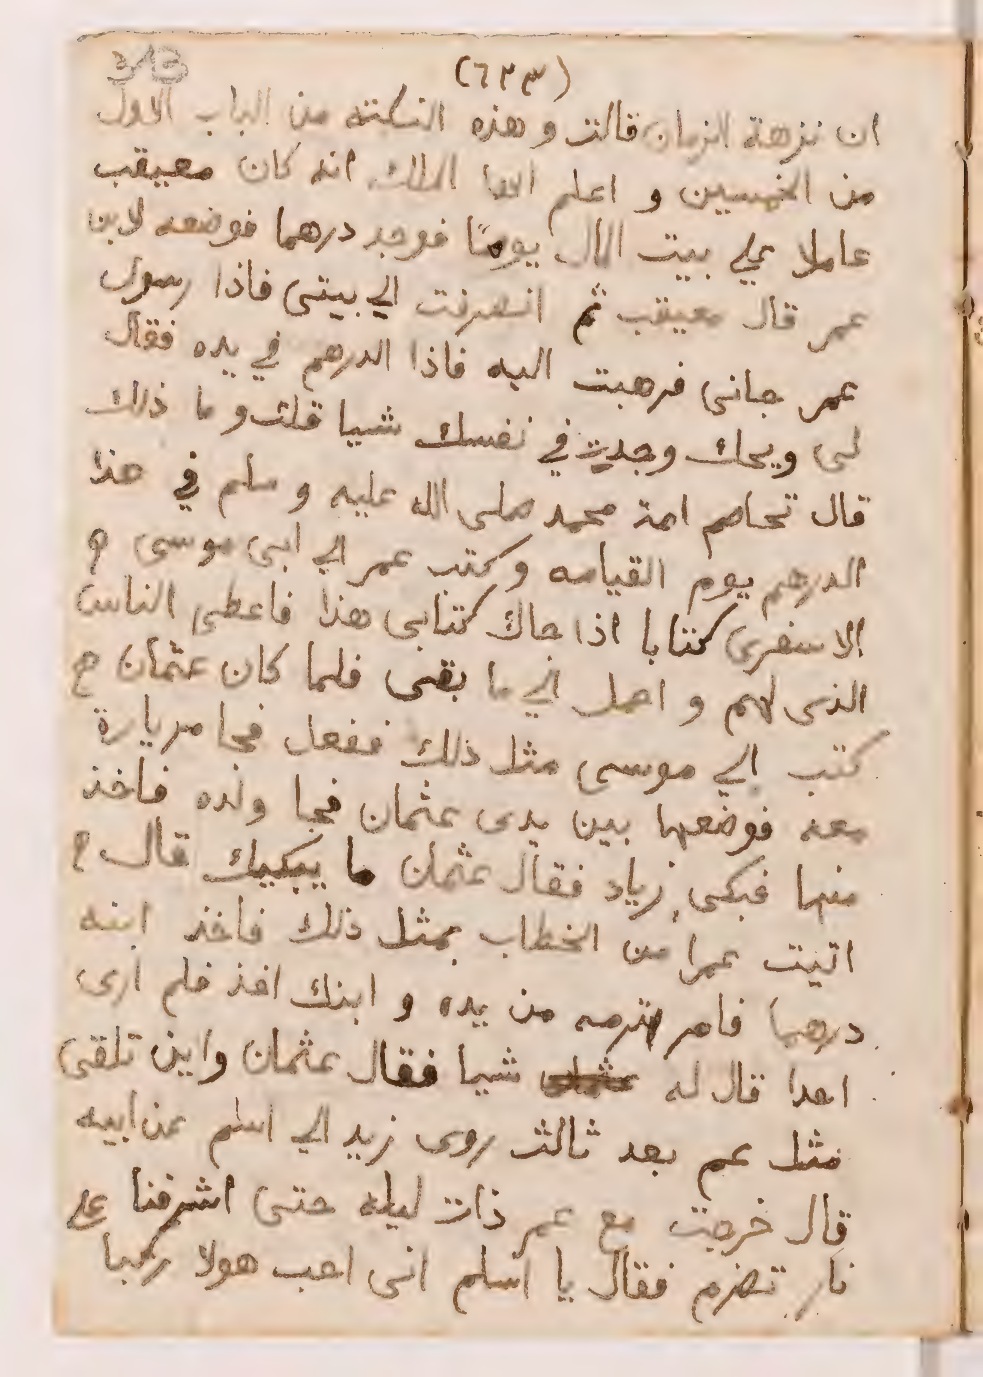 343
(٦٢٣)
ان نزهة الزمان قالت و هذه النكته من الباب الاول
من الخمسين و اعلم ايها الملك انه كان معيقب
عاملا علي بيت المال يوما فوجد درهما فوضعه لابن
عمر قال معيقب ثم انصرفت الي بيتى فاذا رسول
عمر جانى فرهبت اليه فاذا الدرهم في يده فقال
لى ويحك وجدت في نفسك شيا قلت و ما ذلك
قال تخاصم امة محمد صلى الله عليه و سلم في هذا
الدرهم يوم القيامه وكتب عمر الي ابى موسى
الاسفرى كتابا اذا جاك كتابى هذا فاعطى الناس
الذى لهم و احمل الي ما بقى فلما كان عثمان
كتب الي موسى مثل ذلك ففعل فجا مريارة
معه فوضعها بين يدى عثمان فجا ولده فاخذ
منها فبكى زياد فقال عثمان ما يبكيك قال
اتيت عمرا من الخطاب بمثل ذلك فاخذ ابنه
درهما فامر بنزعه من يده و ابنك اخذ فلم ارى
احدا قال له شيا فقال عثمان واين تلقى
مثل عمر بعد ثالث روى زيد الي اسلم عن ابيه
قال خرجت مع عمر ذات ليله حتى اشرفنا علي
نار تضرم فقال يا اسلم انى احب هولا ركبا